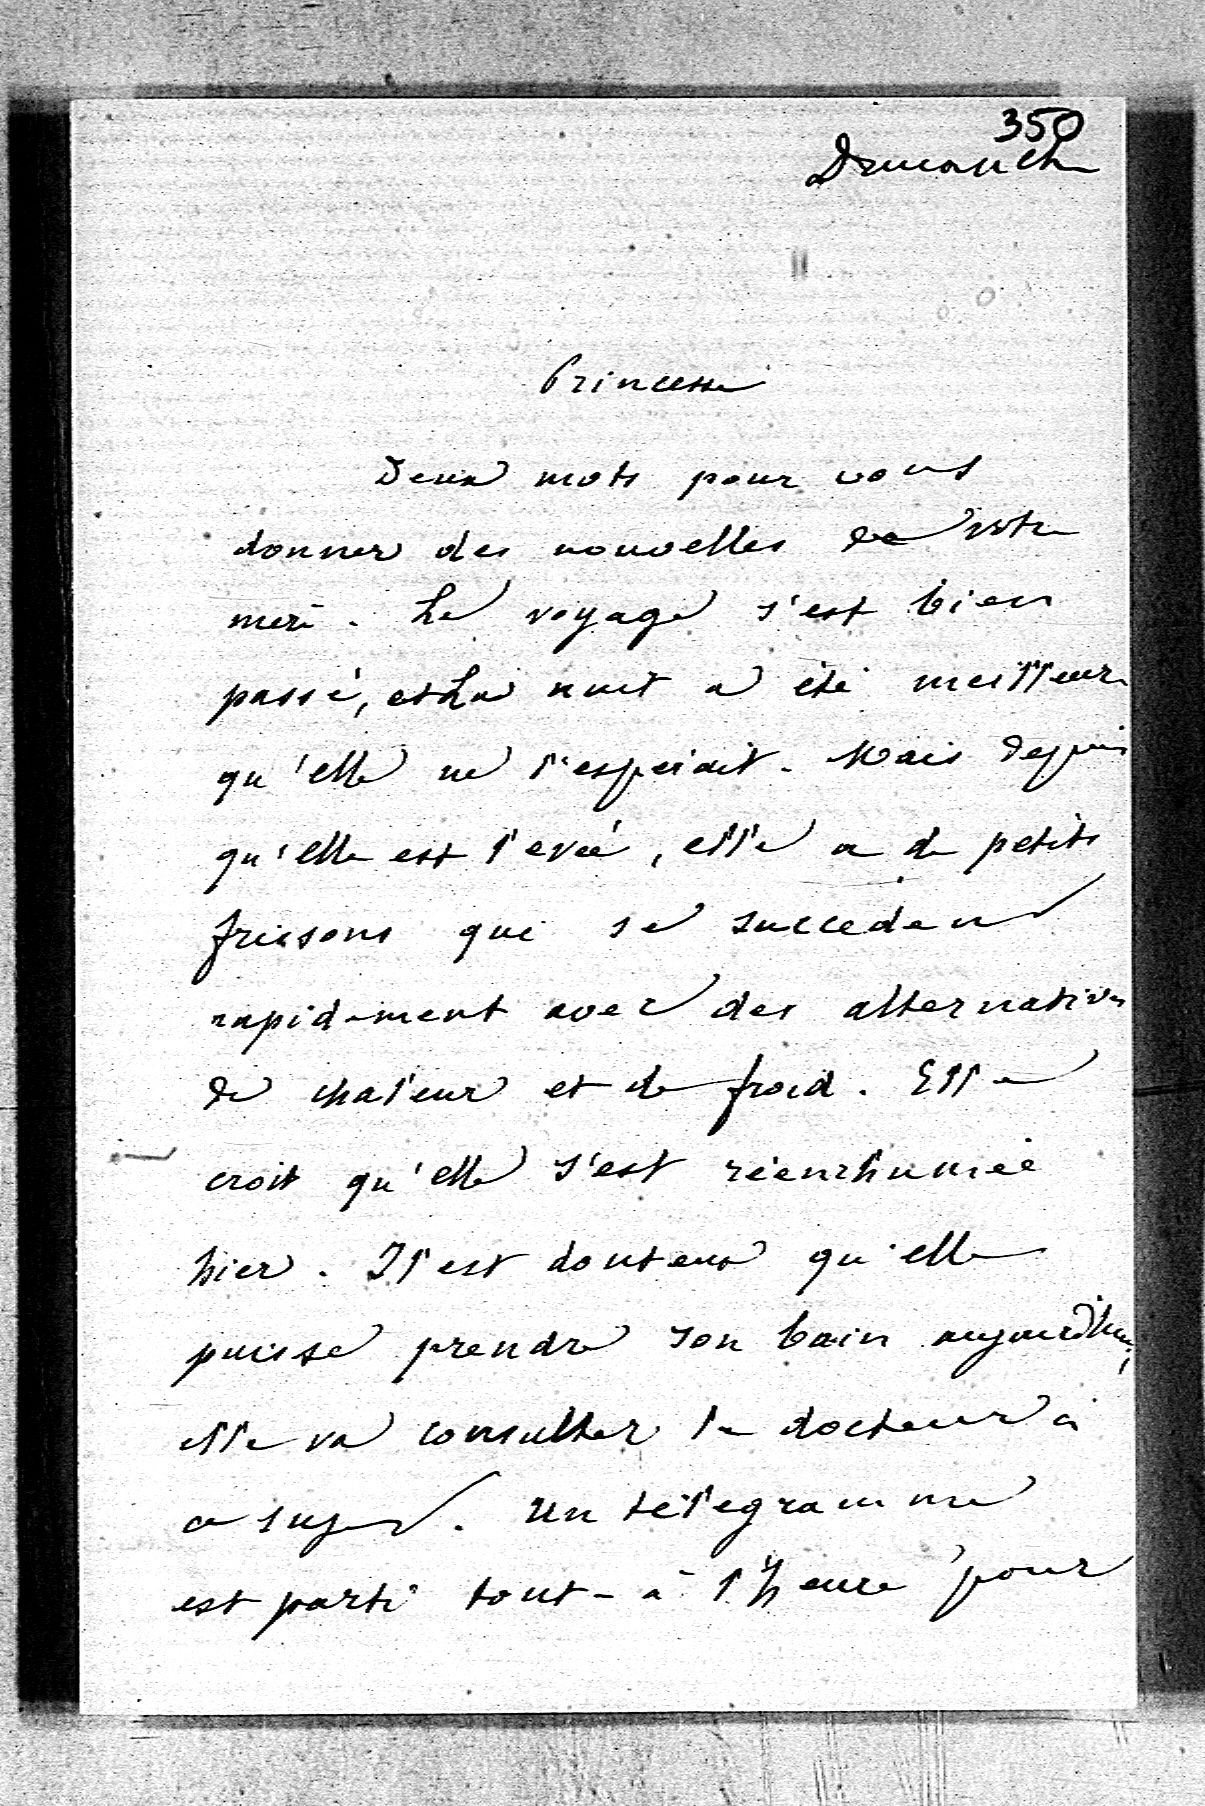 350
Dimanche
Princesse
Deux mots pour vous
donner des nouvelles de votre
mère. Le voyage s'est bien
passé, et la nuit a été meilleure
qu'elle ne l'espérait. Mais depuis
qu'elle est levée, elle a de petits
frissons qui se succèdent
rapidement avec des alternatives
de chaleur et de froid. Elle
croit qu'elle s'est réenrhumée
hier. Il est douteux qu'elle
puisse prendre son bain aujourd'hui,
elle va consulter le docteur à
ce sujet. Un télégramme
est parti tout-à l'heure pour